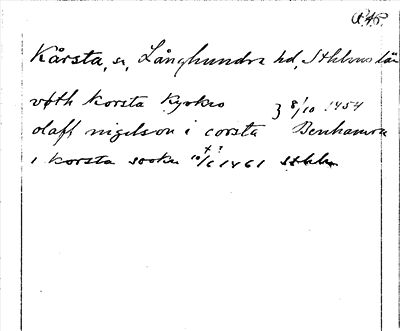 Kårsta, sn, Långhundra hd, Sthlms län
vith Korsta Kyrkio } 8/10 1454
olaff nigelson i corsta Benhamra
i Korsta sookn 10/6 1461 Sthlm